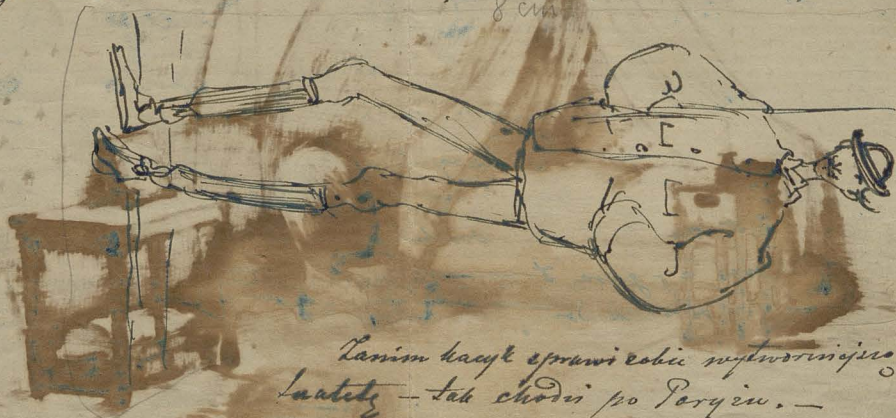 8 cm
Zanim kacyk sprawi sobie wytworniejszą
toaletę – tak chodzi po Paryżu. –